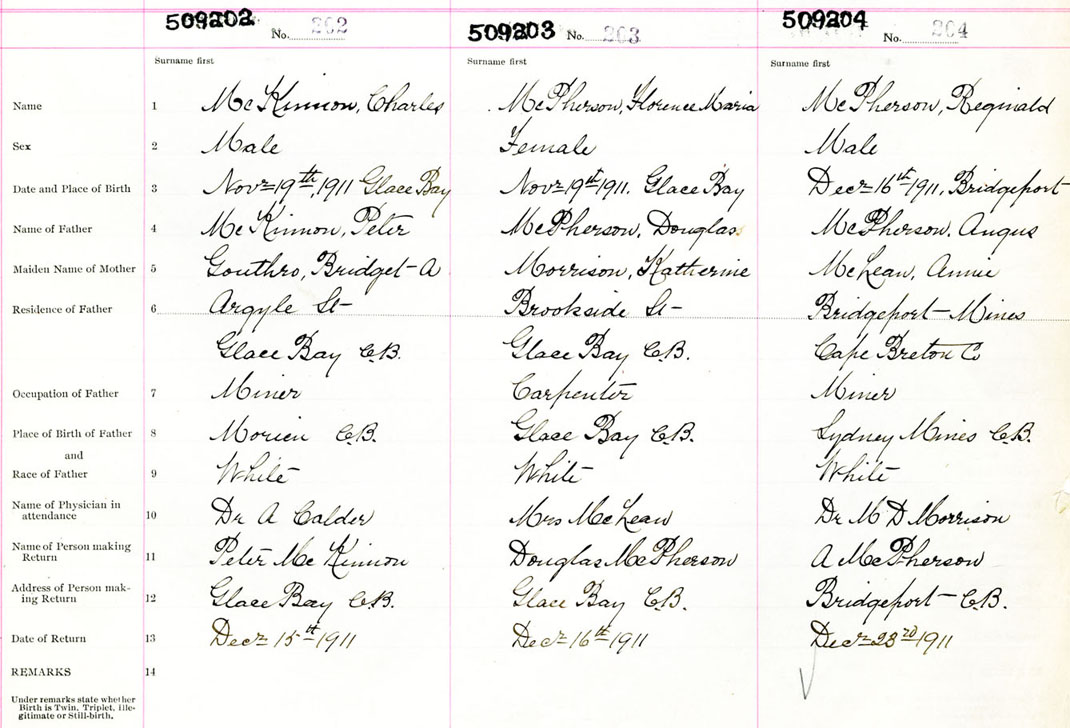 509202 No. 202 509203 No. 203 509204 No. 204
Surname first Surname first Surname first
Name 1 McKinnon, Charles McPherson, Florence Maria McPherson, Reginald
Sex 2 Male Female Male
Date and Place of Birth 3 Novr 19th, 1911 Glace Bay Novr 19st 1911. Glace Bay Decr 16th 1911, Bridgeport
Name of Father 4 McKinnon, Peter McPherson, Douglas McPherson, Angus
Maiden Name of Mother 5 Gouthro, Bridget A Morrison, Katherine McLean, Annie
Residence of Father 6 Argyle St Brookside St Bridgeport Mines
Glace Bay C.B. Glace Bay C.B. Cape Breton Co
Occupation of Father 7 Miner Carpenter Miner
Place of Birth of Father 8 Morien C.B. Glace Bay C.B. Sydney Mines C.B.
and
Race of Father 9 White White White
Name of Physician in
attendance 10 Dr A Calder Mrs McLean Dr M D Morrison
Name of Person making
Return 11 Peter McKinnon Douglas McPherson A McPherson
Address of Person mak-
ing Return 12 Glace Bay C.B. Glace Bay C.B. Bridgeport C.B.
Date of Return 13 Decr 15th 1911 Decr 16th 1911 Decr 23rd 1911
REMARKS 14
Under remarks state whether
Birth is Twin, Triplet, Ille-
gitimate or Still-birth.